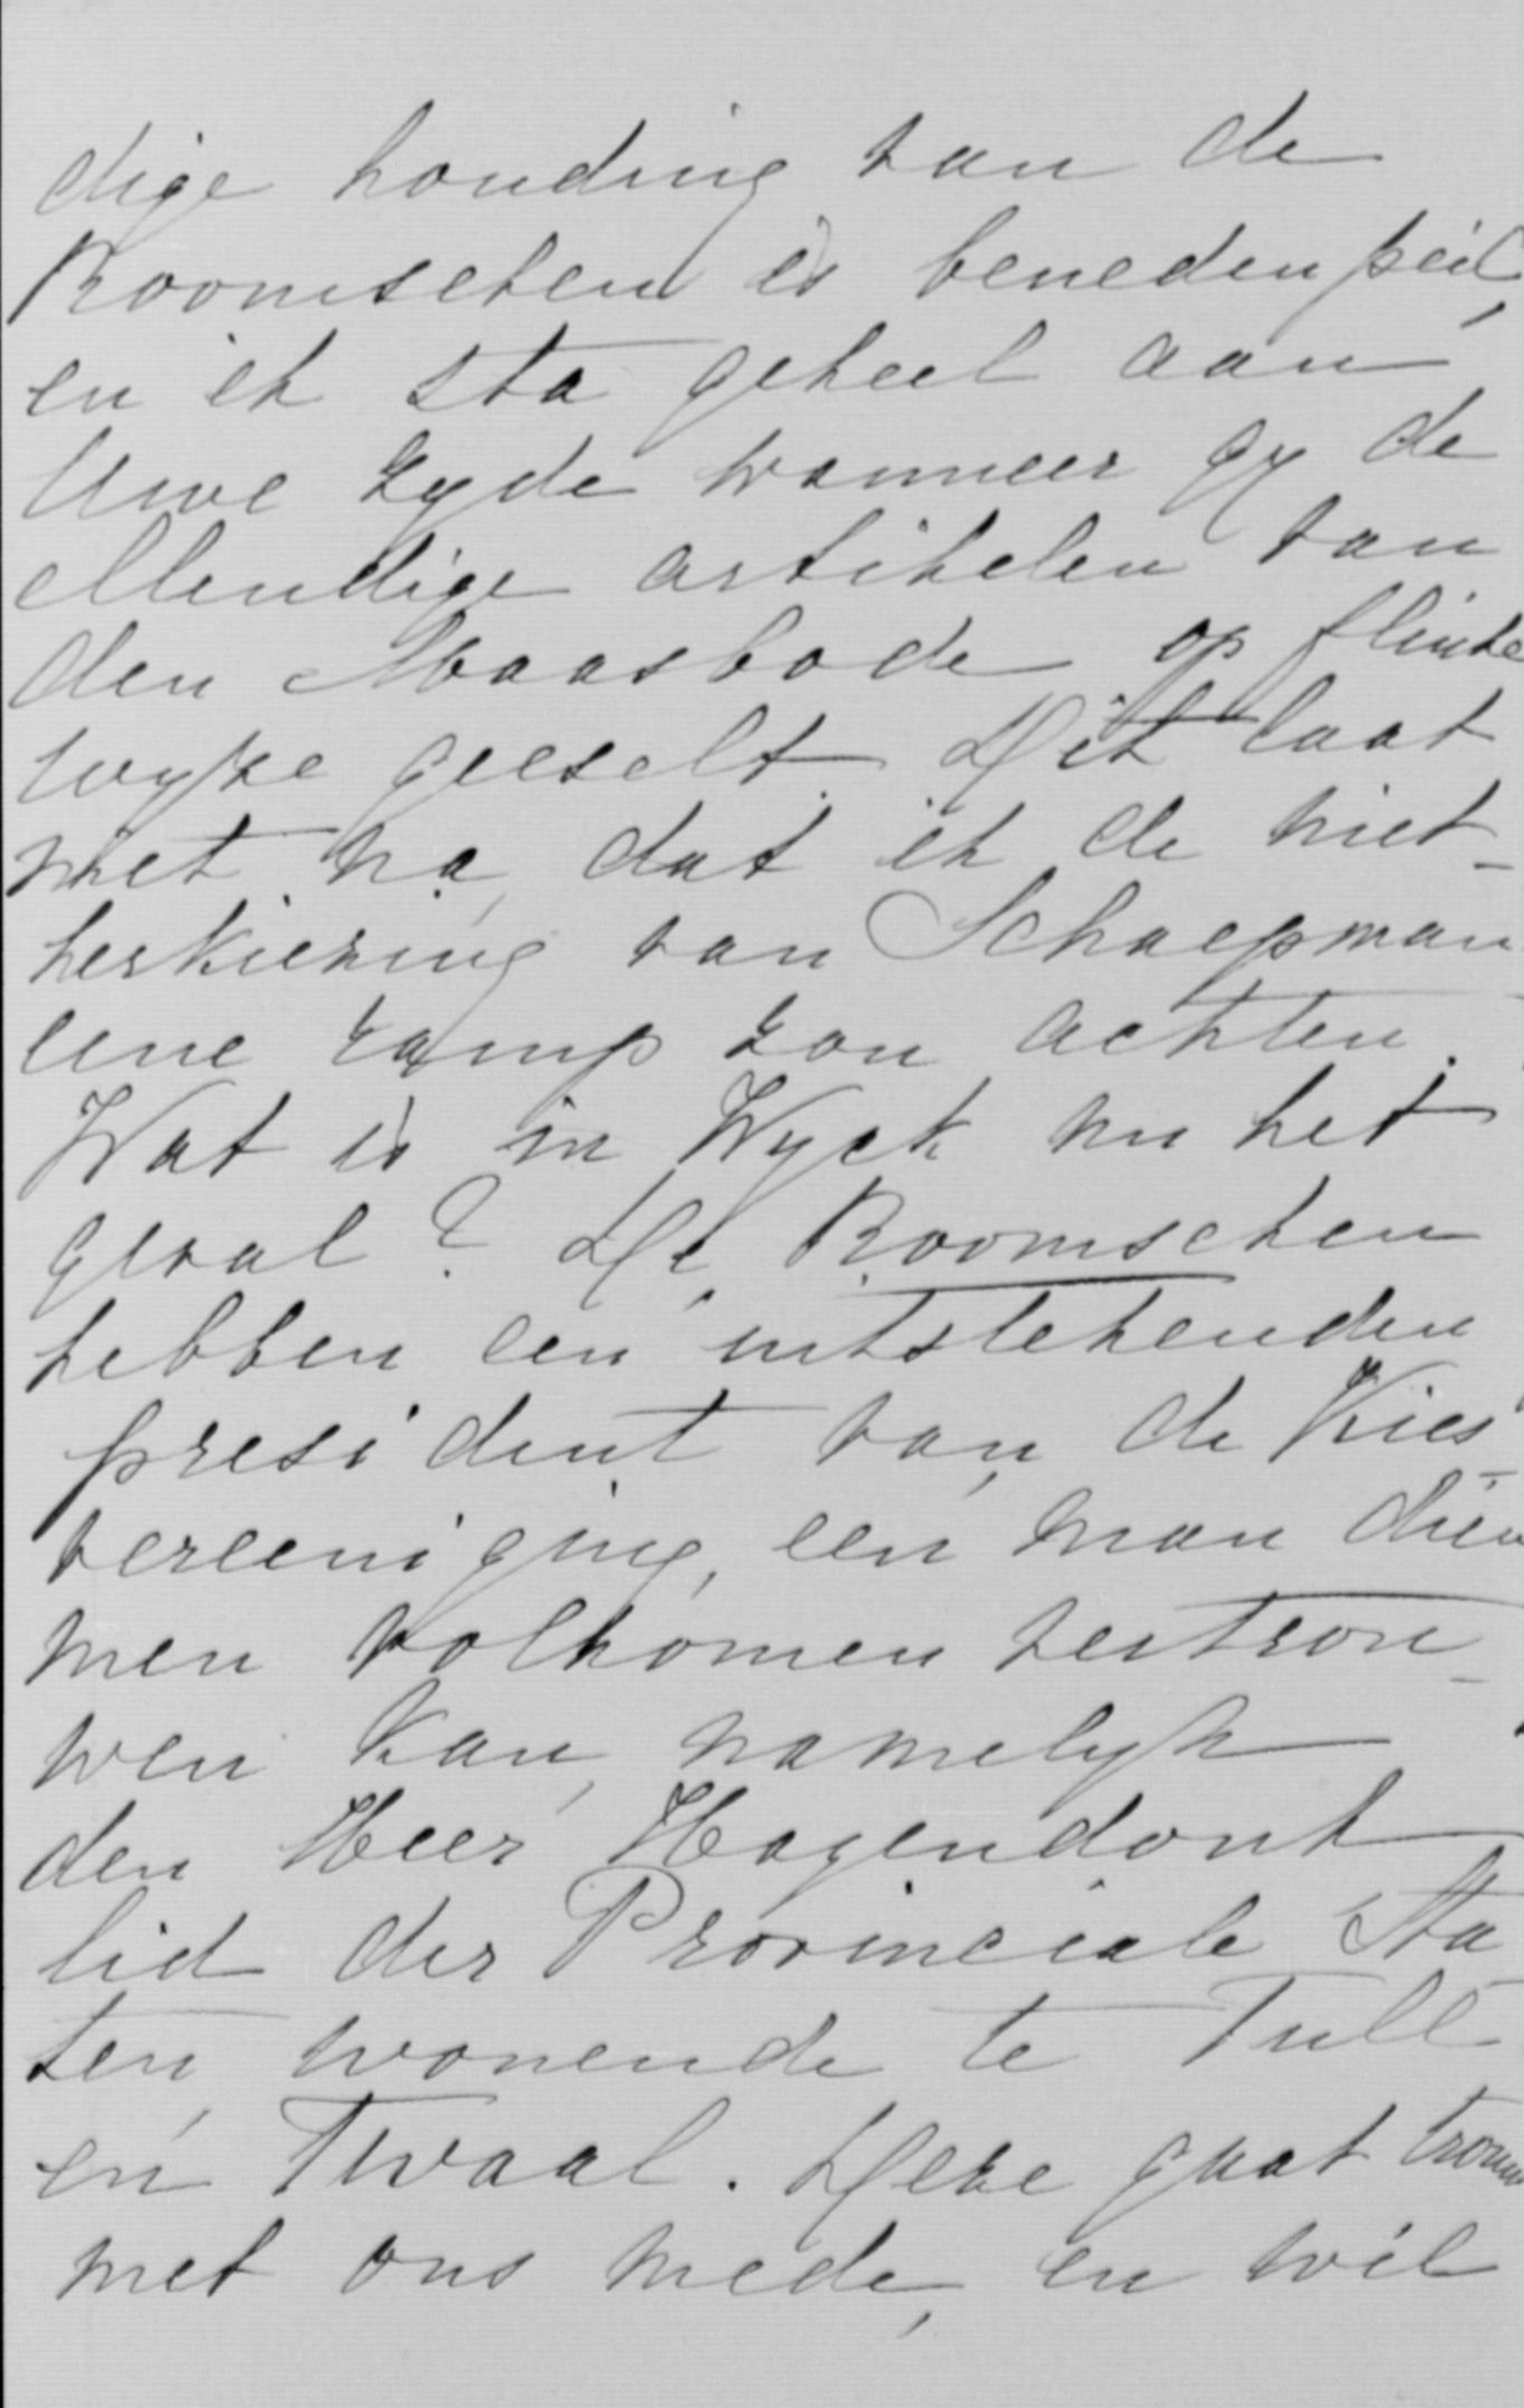 dige houding van de
Roomschen is beneden peil,
en ik sta geheel aan
Uwe zyde wanneer gy de
ellendige artikelen van
den Maasbode op flinke
wyze geeselt. Dit laat
niet na, dat ik de niet-
herkiezing van Schaepman
eene ramp zou achten.
Wat is in Wyck nu het
geval? De Roomschen
hebben een uitstekenden
president van de Kies-
vereeniging, een man dien
men volkomen vertrou-
wen kan, namelyk
den Heer Hogendonk
lid der Provinciale Sta
ten, wonende te Tull
en 'Twaal. Deze gaat trouw
met ons mede, en wil